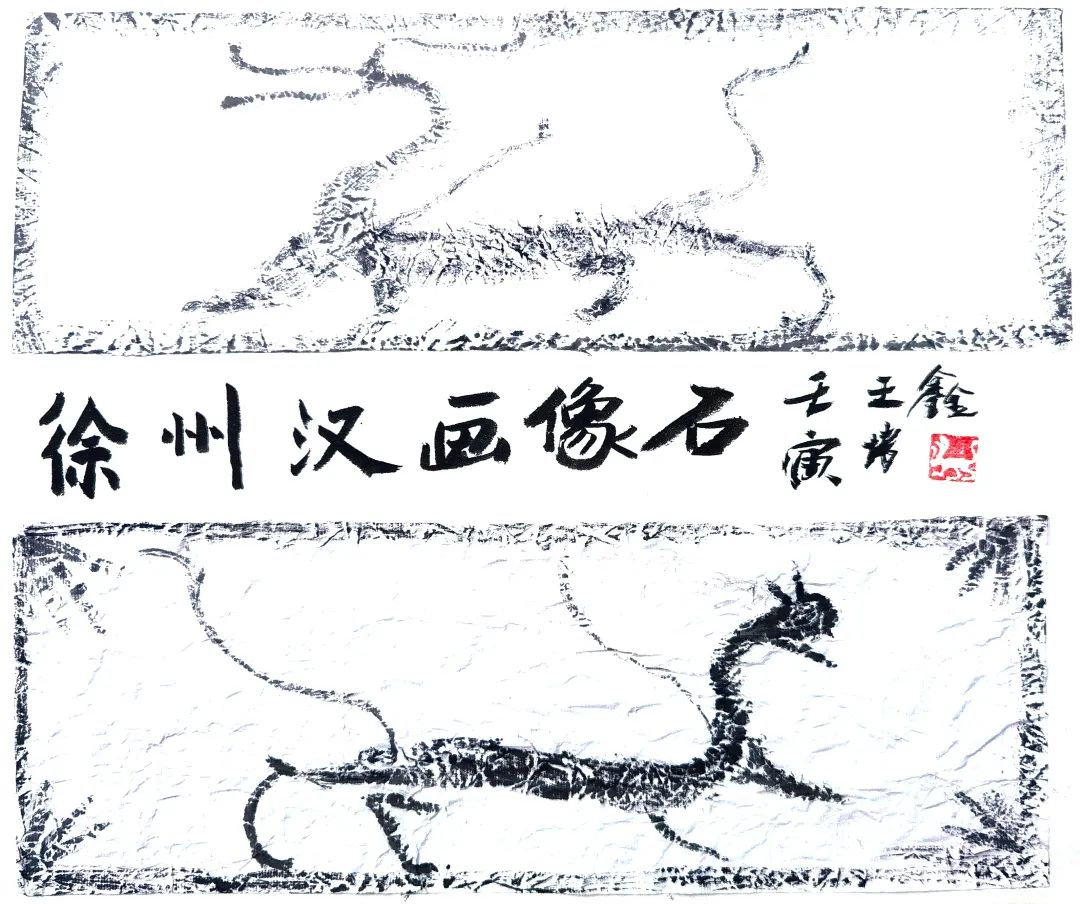 徐州汉画像石
壬寅
王
鑫